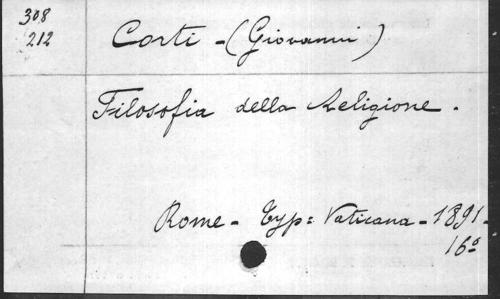 308
212
Corti - (Giovanni)
Filosofia della Religione.
Rome - Typ: Vaticana - 1891 -
16º